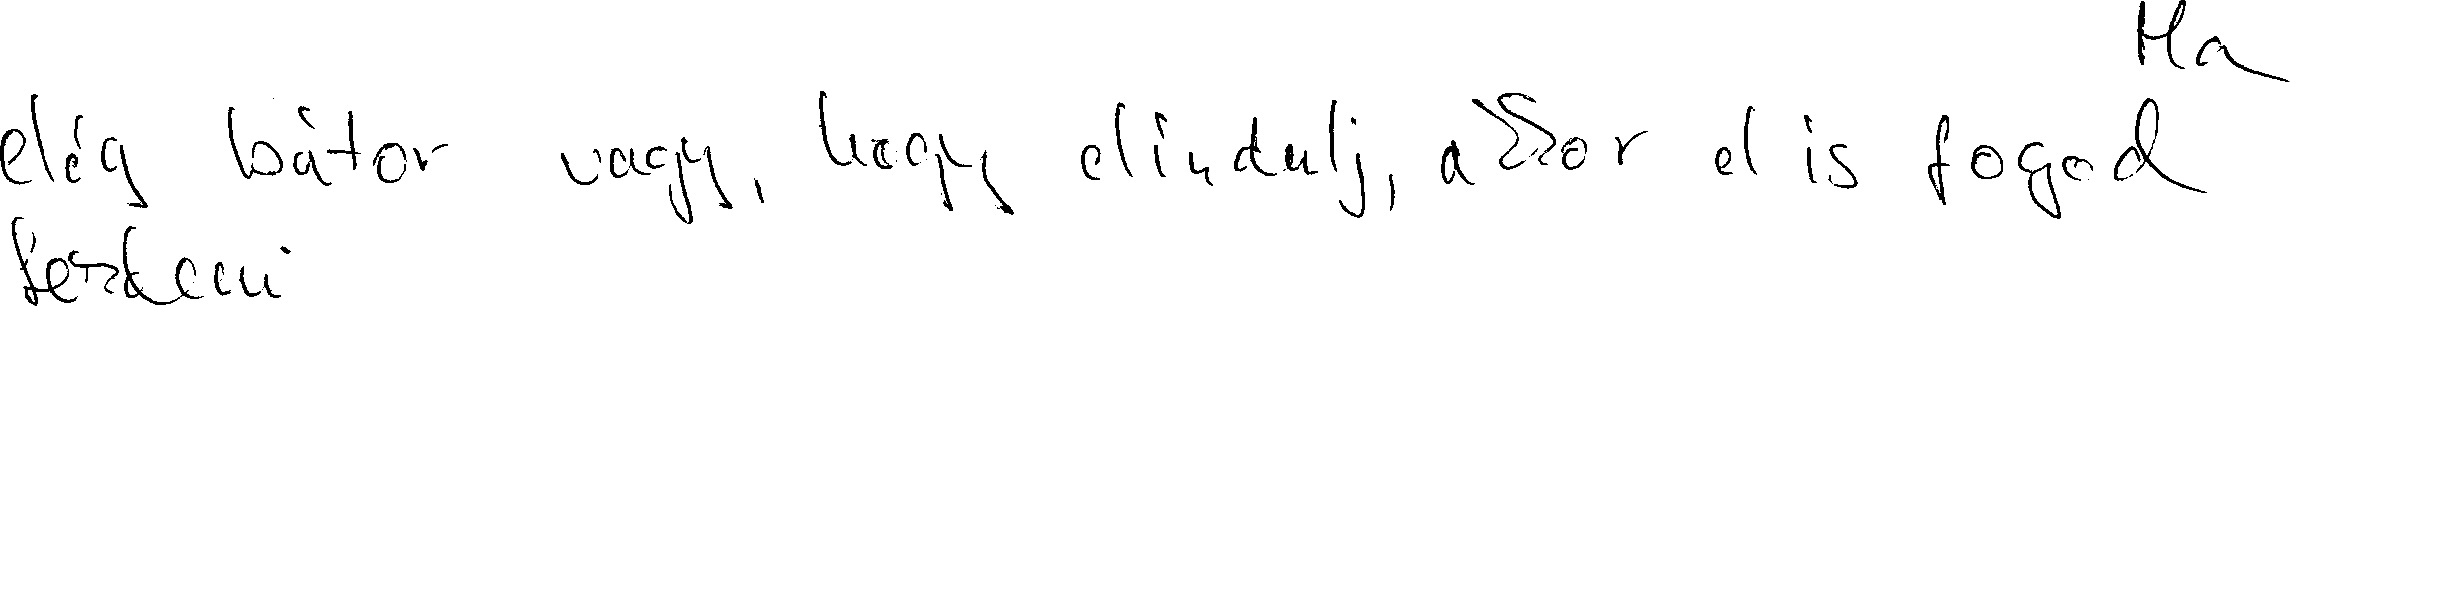 Ha
elég bátor vagy, hogy elindulj, akkor el is fogod
kezdeni